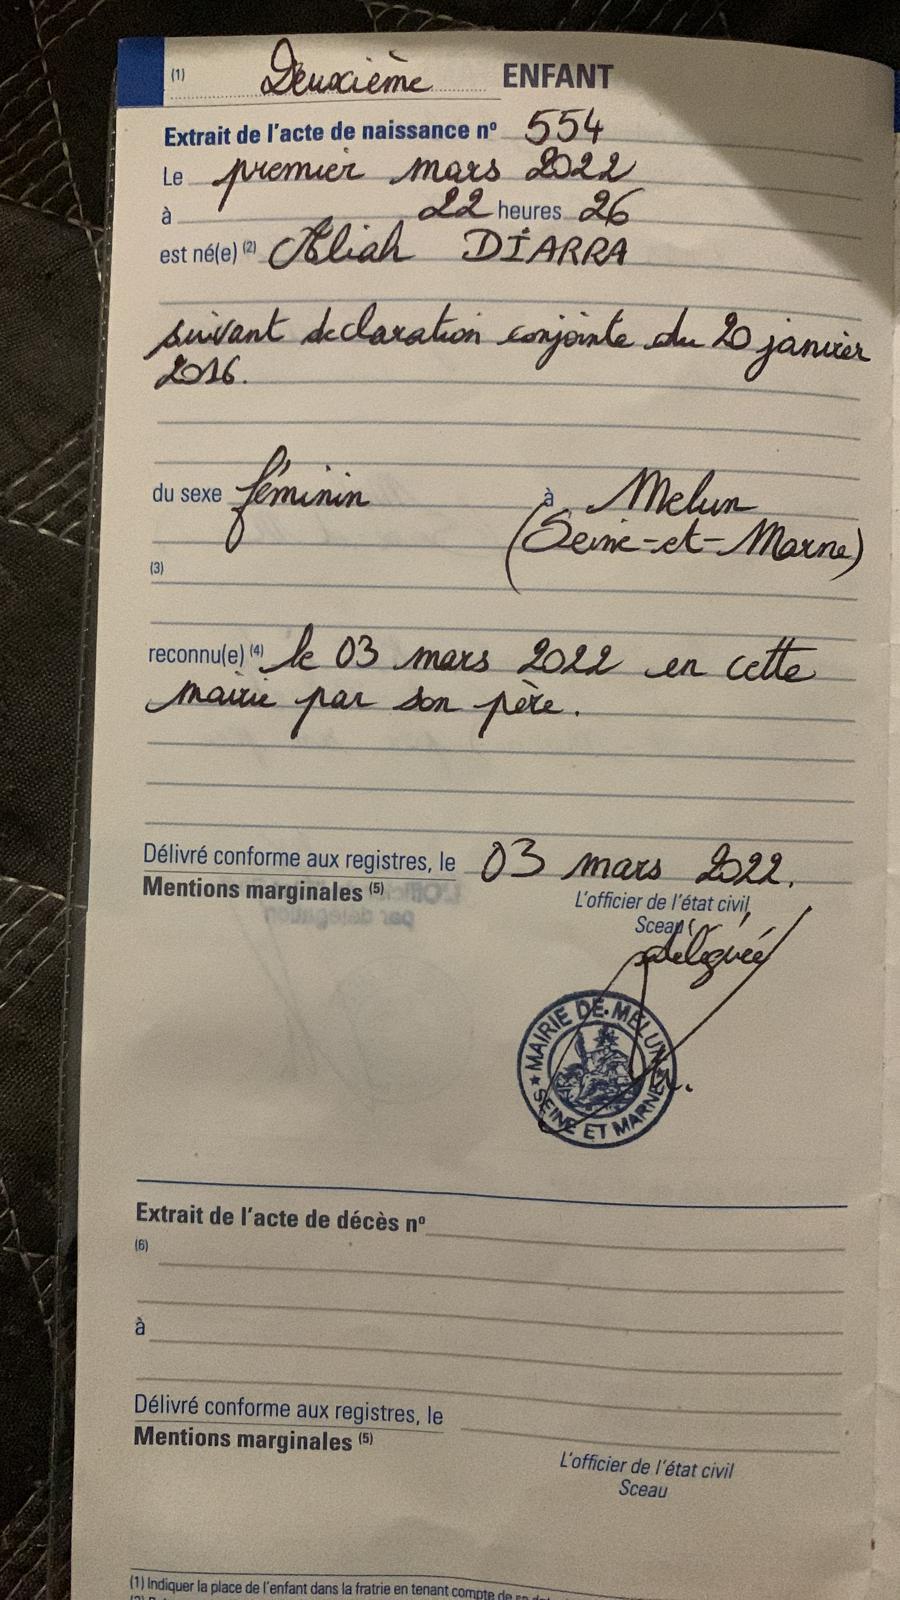 (1) Deuxième ENFANT
Extrait de l'acte de naissance nº 554
Le premier mars 2022
à 22 heures 26
est né(e) (2) Aliah DIARRA
suivant declaration conjointe du 20 janvier
2016.
du sexe féminin à Melun
(Seine-et-Marne)
(3)
reconnu(e) (4) le 03 mars 2022 en cette
mairie par son père.
Délivré conforme aux registres, le 03 mars 2022.
Mentions marginales (5)
L'officier de l'état civil
Sceau
déléguée
MAIRIE DE MELUN
SEINE ET MARNE
Extrait de l'acte de décès nº
(6)
à
Délivré conforme aux registres, le
Mentions marginales (5)
L'officier de l'état civil
Sceau
(1) Indiquer la place de l'enfant dans la fratrie en tenant compte de